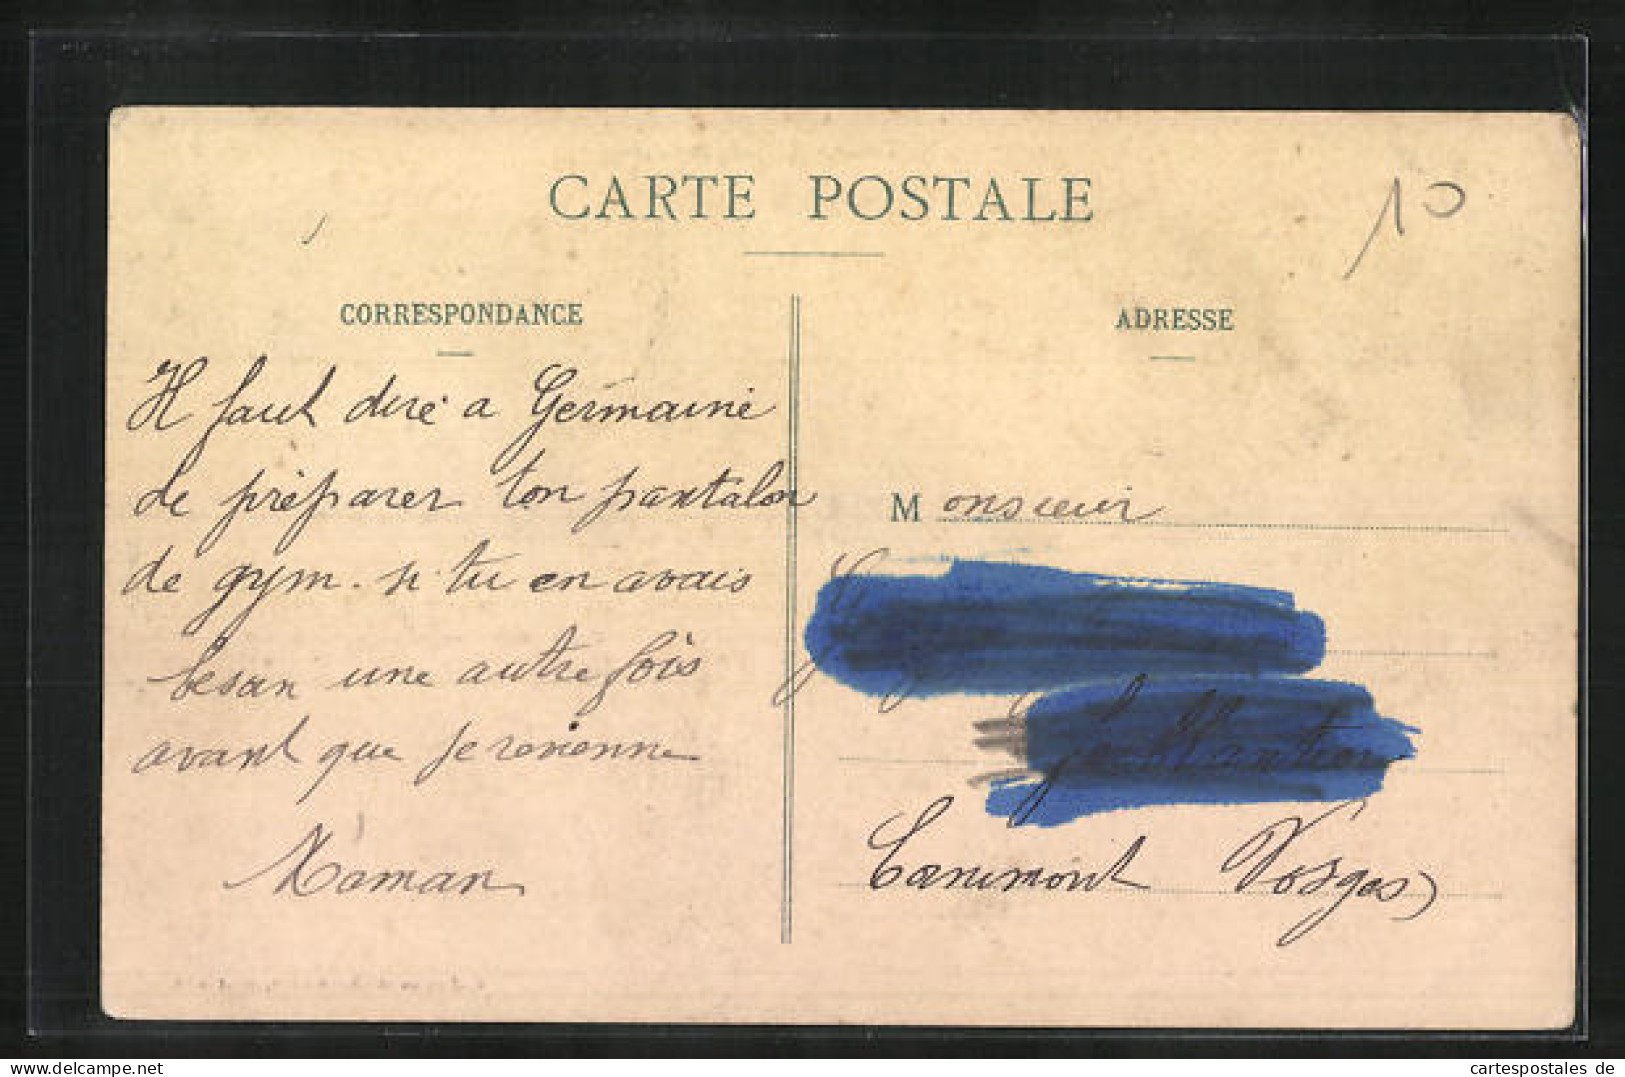 CARTE POSTALE
10
CORRESPONDANCE
ADRESSE
Il faut dire a Germaine
de préparer ton pantalon
de gym. si tu en avais
besoin une autre fois
avant que je revienne
Maman
Monsieur
Vosges
cartespostales de